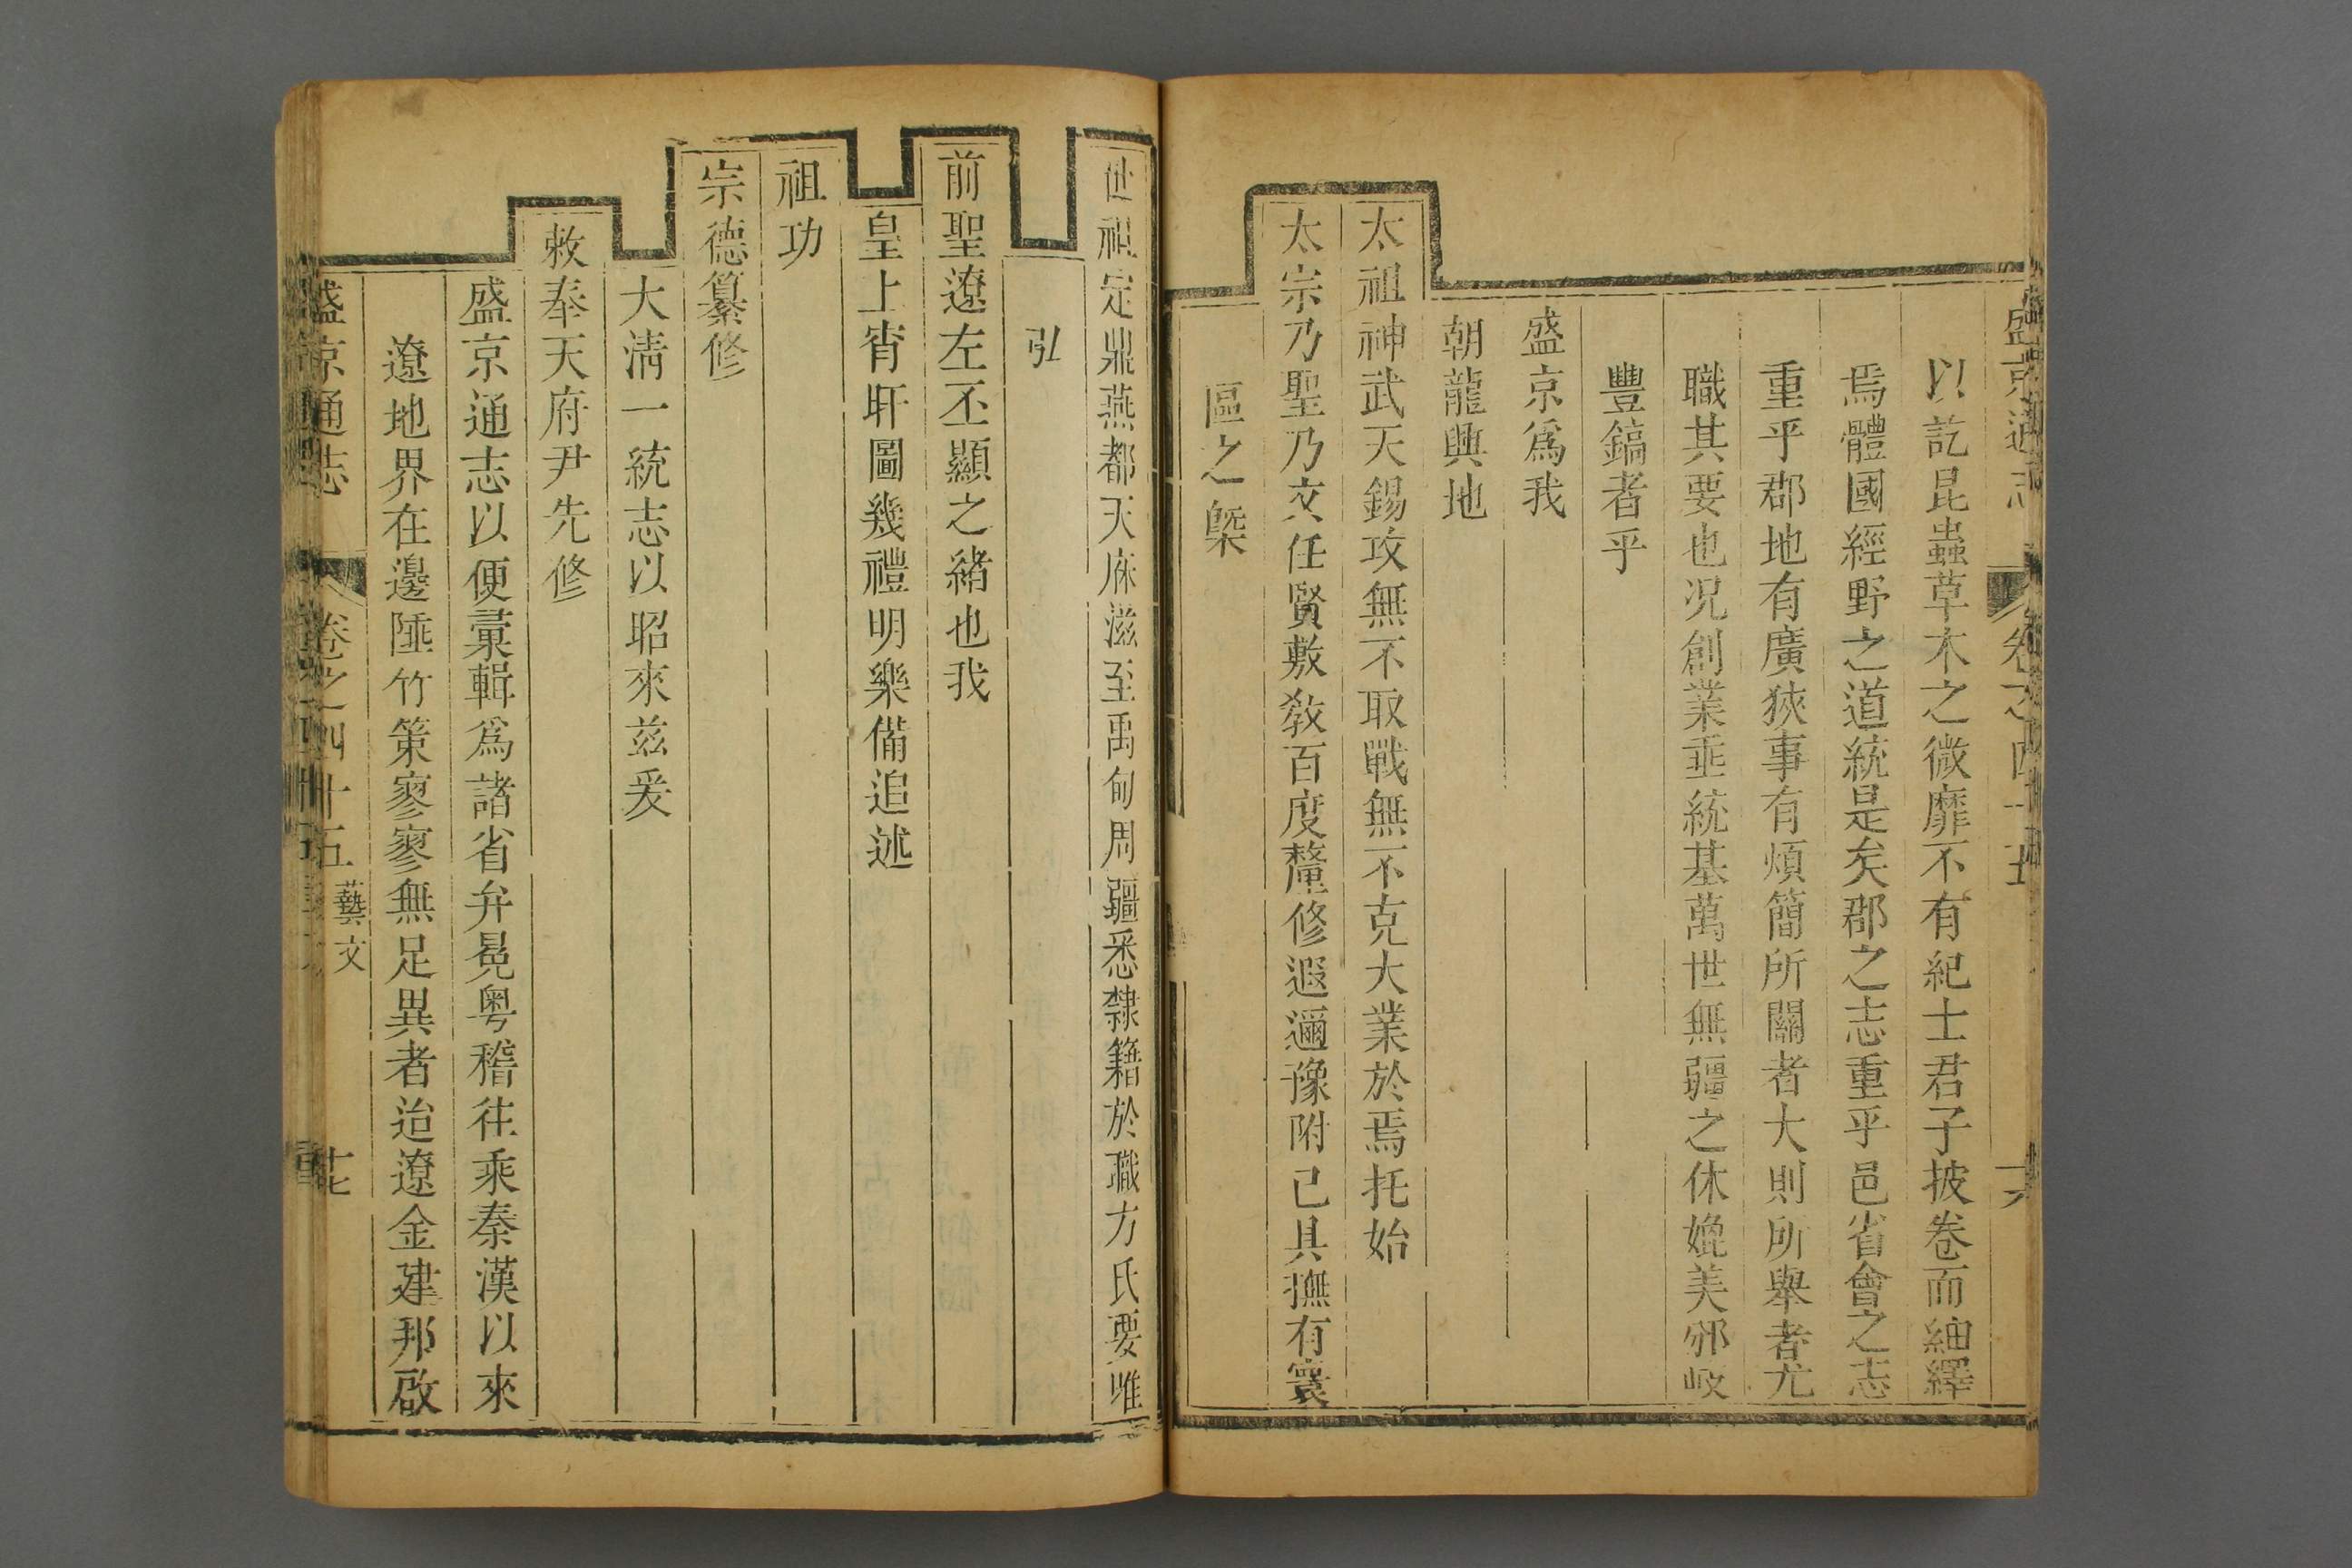 盛京通志 卷之四十五 十六
以訖昆蟲草木之微靡不有紀士君子披卷而紬繹
焉體國經野之道統是矣郡之志重乎邑省會之志
重乎郡地有廣狹事有煩簡所關者大則所舉者尤
職其要也况創業垂統基萬世無疆之休媲美邠岐
豐鎬者乎
盛京爲我
朝龍興地
太祖神武天錫攻無不取戰無不克大業於焉托始
太宗乃聖乃文任賢敷教百度釐修遐邇豫附已具撫有寰
區之槩
世祖定鼎燕都天庥滋至禹甸周疆悉隸籍於職方氏要唯
弘
前聖遼左丕顯之緒也我
皇上宵旰圖幾禮明樂備追述
祖功
宗德纂修
大淸一統志以昭來兹爰
敕奉天府尹先修
盛京通志以便彚輯爲諸省弁冕粤稽往乘秦漢以來
遼地界在邊陲竹策寥寥無足異者迨遼金建邦啟
盛京通志 卷之四十五 藝文 十七